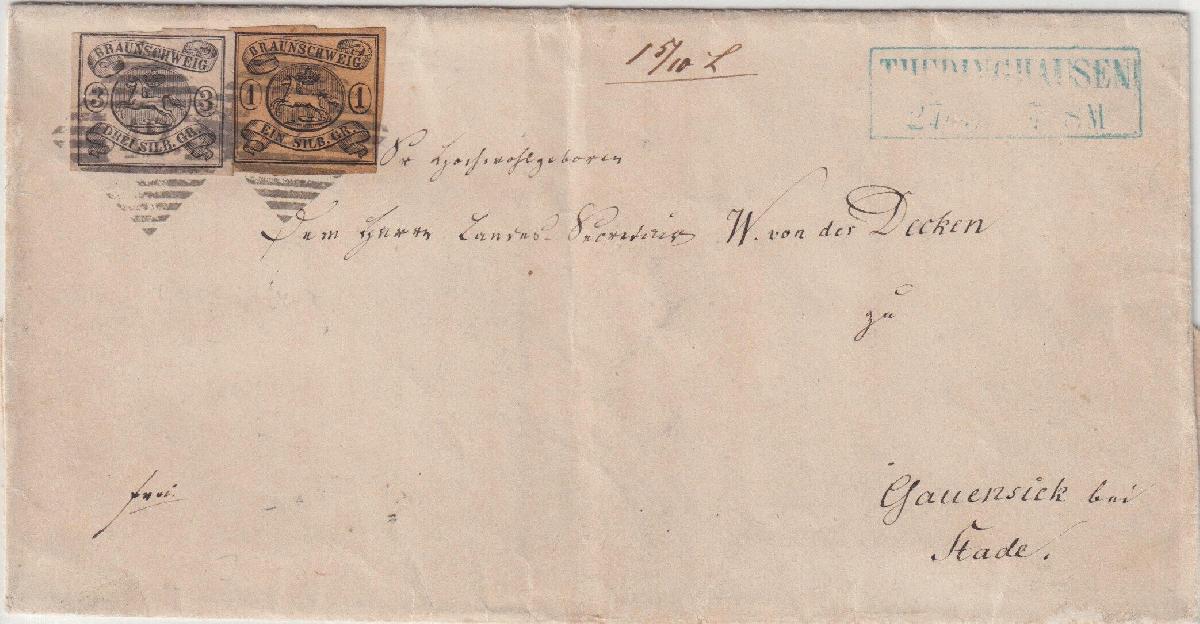 BRAUNSCHWEIG
3 3
DREI SILB. GR.
BRAUNSCHWEIG
1 1
EIN SILB. GR.
15/10 L
THEDINGHAUSEN
Sr Hochwohlgeboren
Dem Herrn Landes-Secretair W. von der Decken
zu
frei
Gauensick bei
Stade.